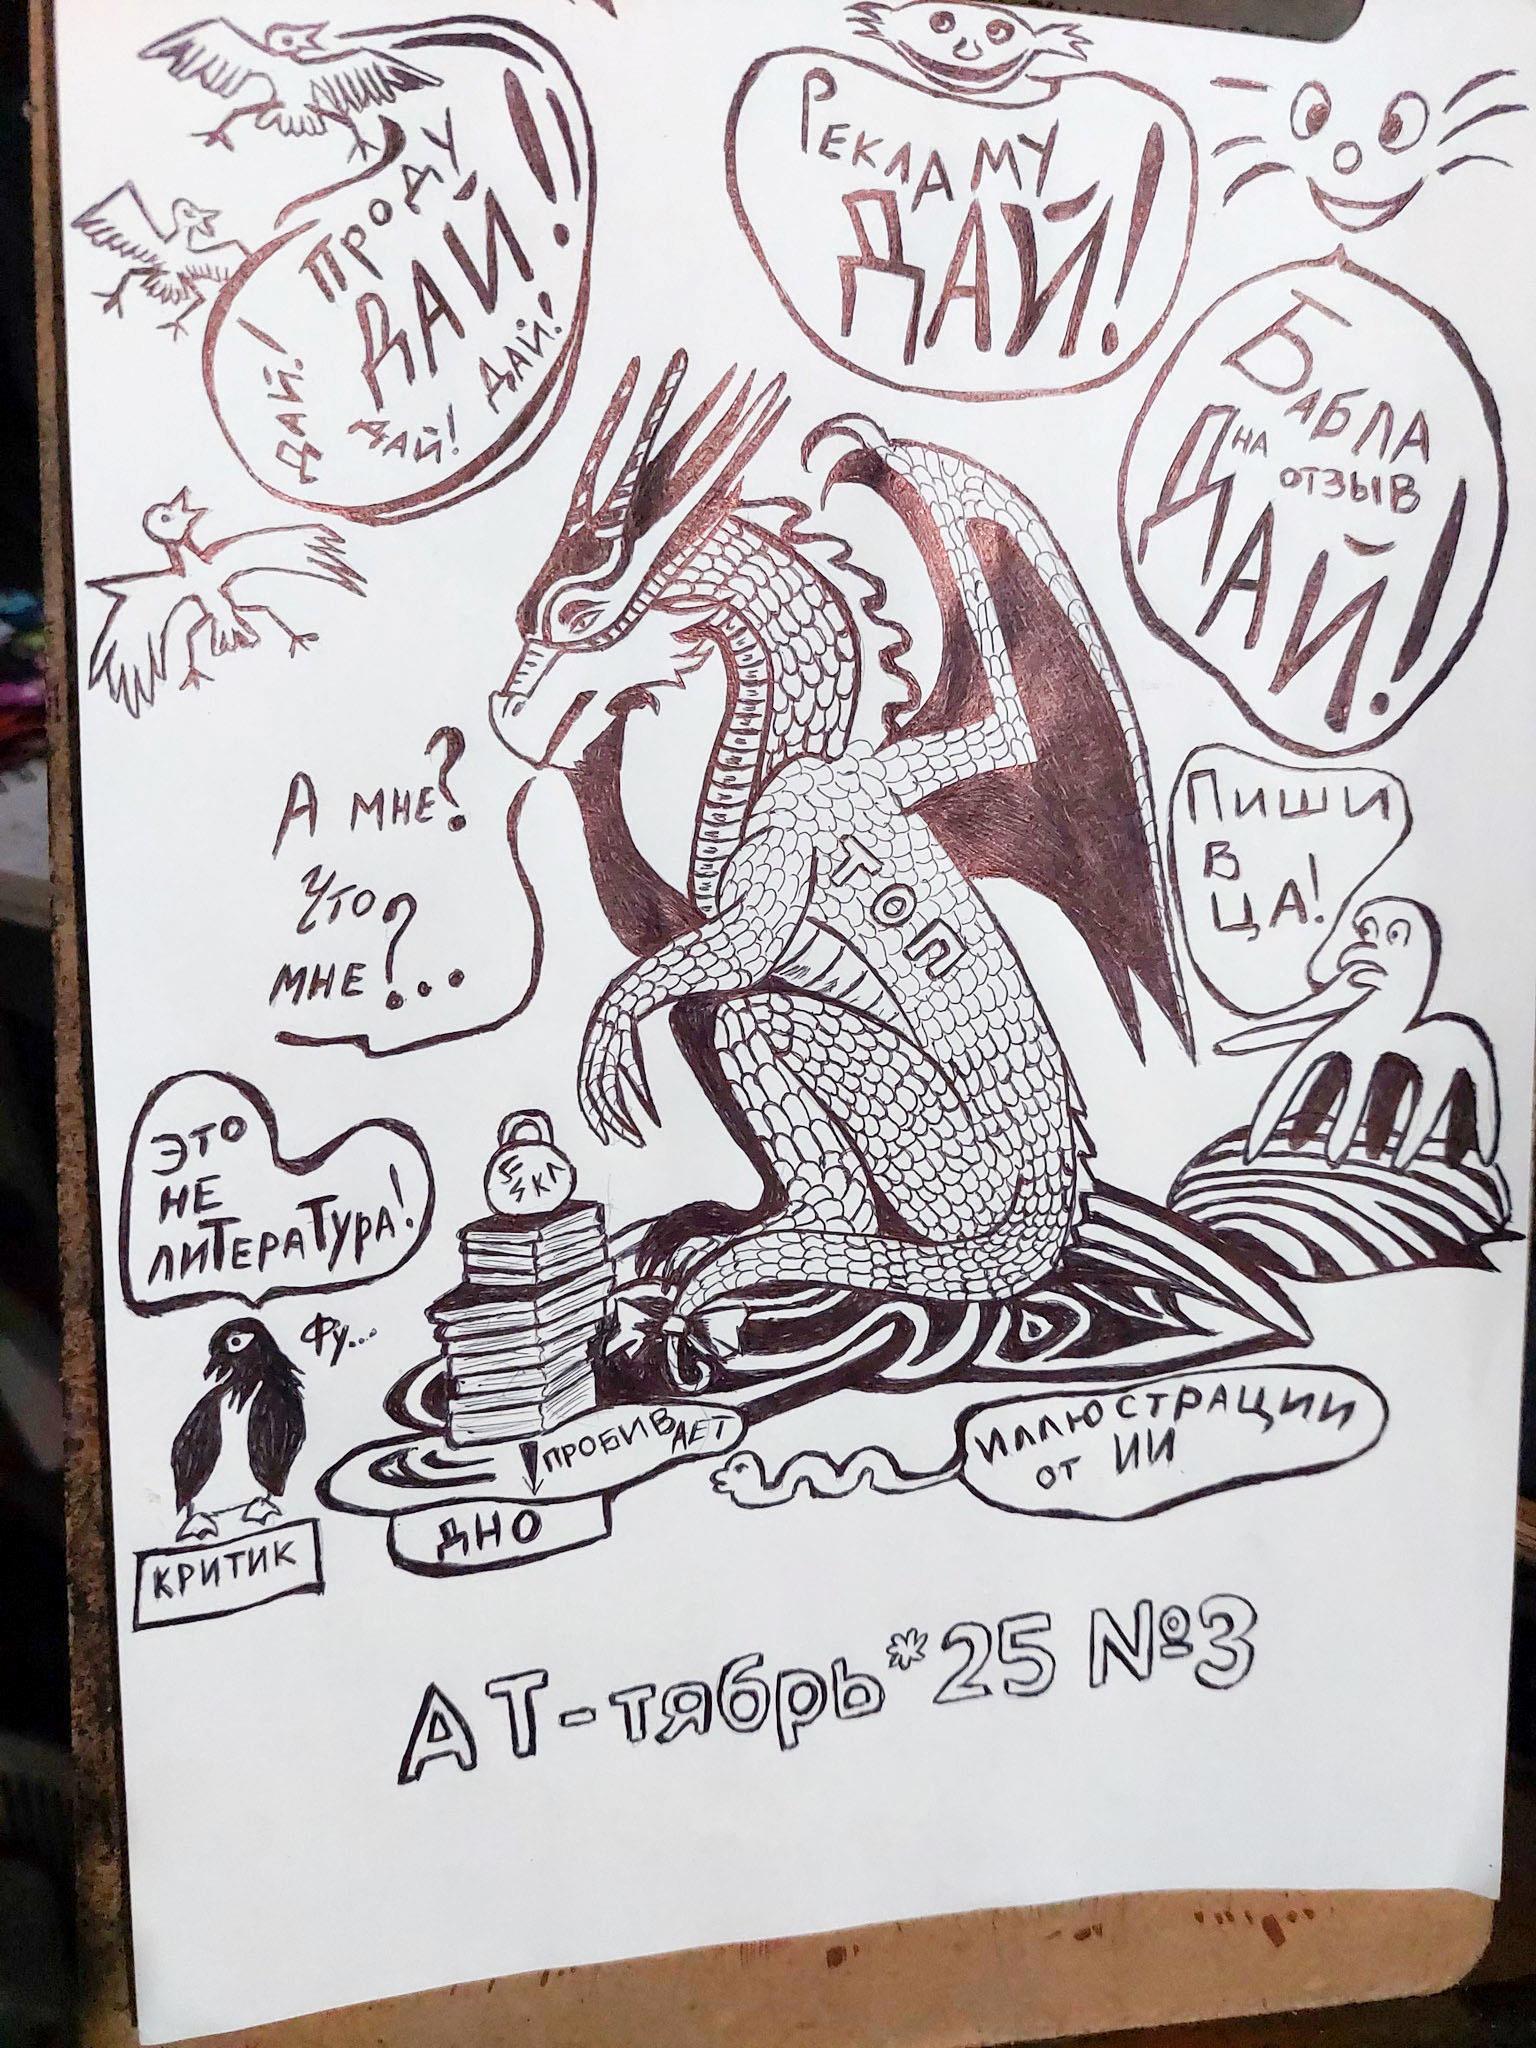 Проду
ДАЙ!
ДАЙ!
ДАЙ!
ДАЙ!
РЕКЛАМУ
ДАЙ!
БАБЛА
НА
ОТЗЫВ
ДАЙ!
А МНЕ?
ЧТО
МНЕ?...
ТОП
ПИШИ
В
ЦА!
ЭТО
НЕ
ЛИТЕРАТУРА!
Фу...
КРИТИК
ПРОБИВАЕТ
ДНО
ИЛЛЮСТРАЦИИ
ОТ ИИ
АТ-тябрь*25 №3